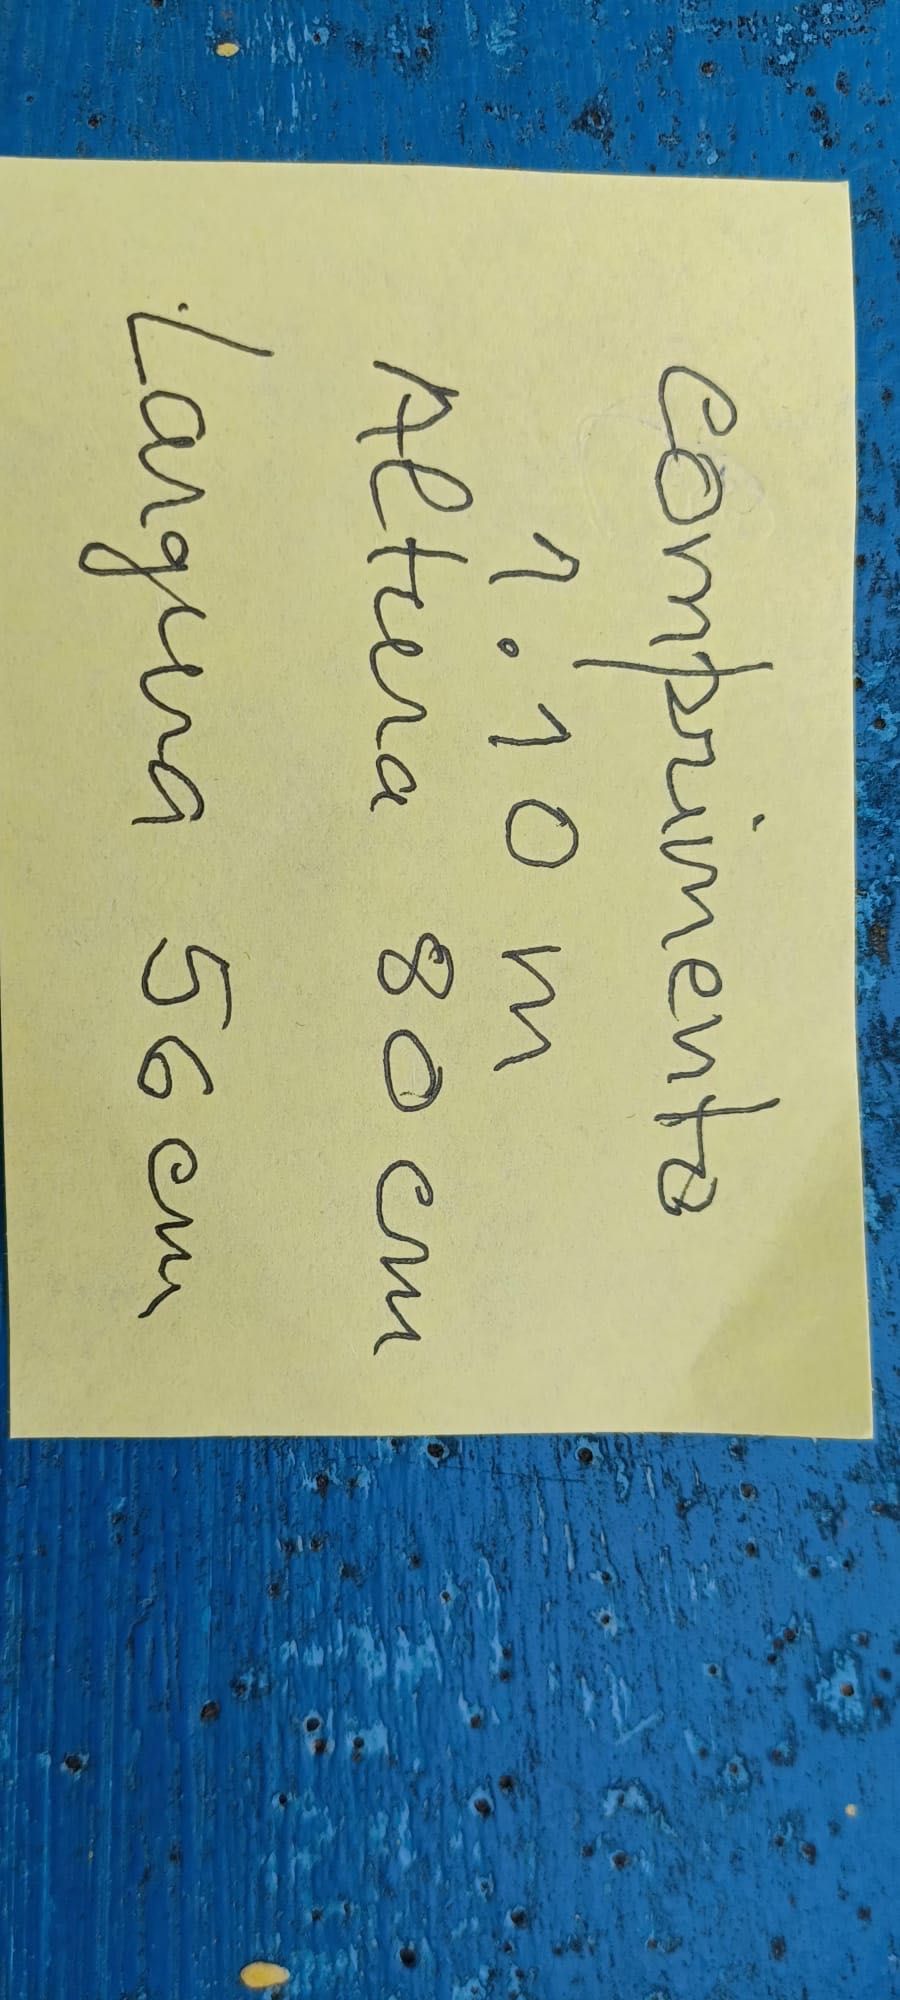 comprimento
1.10 m
Altura 80 cm
Largura 56 cm